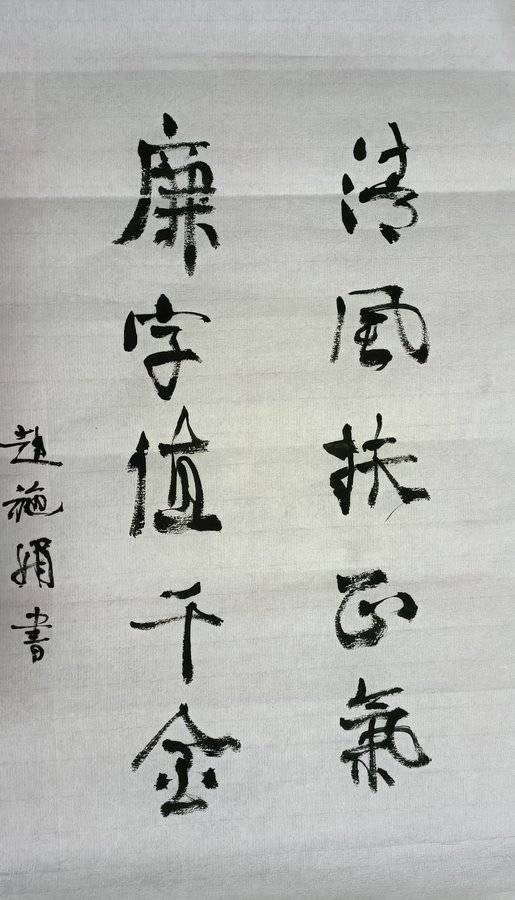 清风扶正氣
廉字值千金
赵施娟書